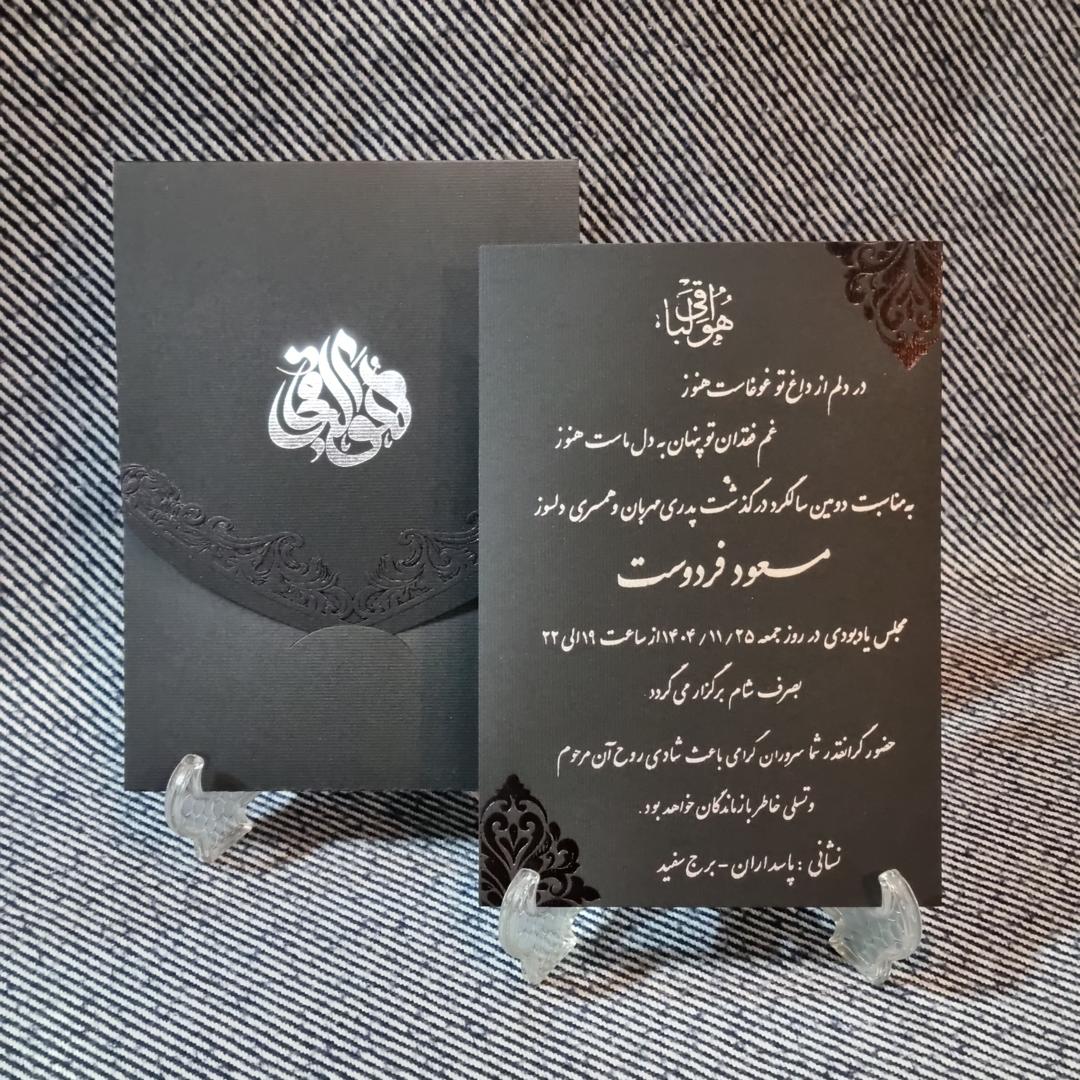 هو الباقی
هوالباقی
در دلم از داغ تو غوغاست هنوز
غم فقدان تو پنهان به دل ماست هنوز
به مناسبت دومین سالگرد درگذشت پدری مهربان و همسری دلسوز
مسعود فردوست
مجلس یادبودی در روز جمعه ۱۴۰۴/۱۱/۲۵ از ساعت ۱۹ الی ۲۲
بصرف شام برگزار می گردد
حضور گرانقدر شما سروران گرامی باعث شادی روح آن مرحوم
و تسلی خاطر بازماندگان خواهد بود.
نشانی : پاسداران - برج سفید